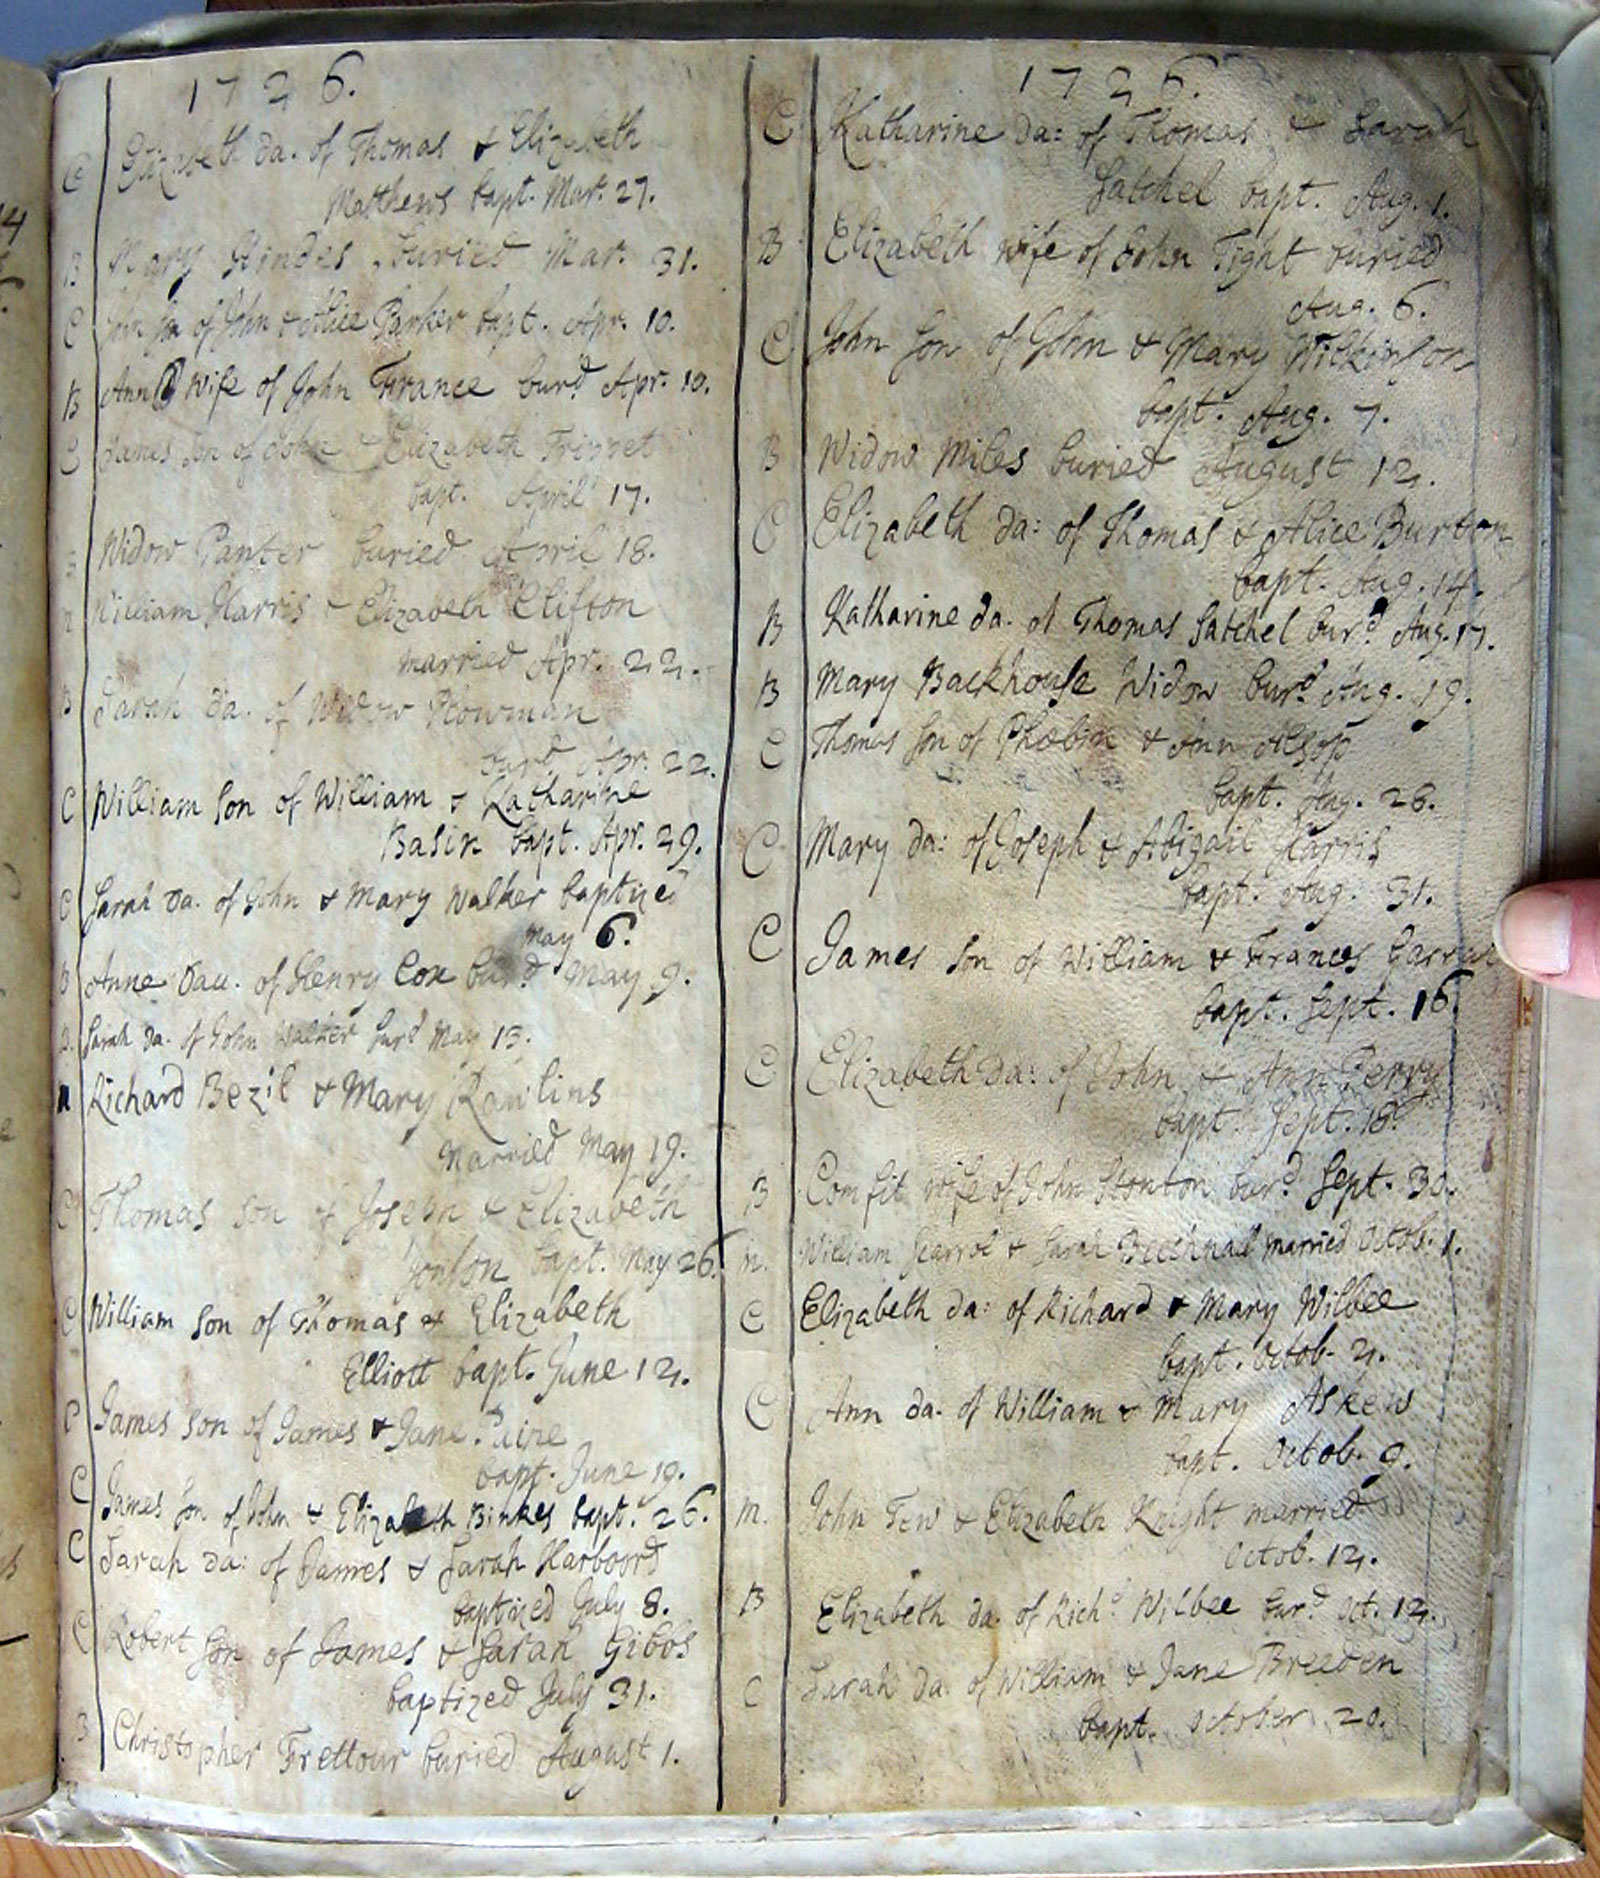 1726.
C Elizabeth da. of Thomas & Elizabeth
Matthews bapt. Mar. 27.
B Mary Hindes buried Mar. 31.
C John son of John & Alice Parker bapt. Apr. 10.
B Ann wife of John France burd Apr. 10.
C James son of John & Elizabeth Trippet
bapt. April 17.
Widow Panter buried April 18.
William Harris & Elizabeth Clifton
married Apr. 22.
B Sarah da. of Widow Plowman
burd Apr. 22.
C William son of William & Katharine
Basin bapt. Apr. 29.
C Sarah da. of John & Mary Walker baptized
May 6.
B Anne dau. of Henry Cox burd May 9.
B. Sarah da. of John Walker burd May 13.
Richard Bezil & Mary Rawlins
Married May 19.
C Thomas son of Joseph & Elizabeth
Jonson bapt. May 26.
C William son of Thomas & Elizabeth
Elliott bapt. June 12.
C James son of James & Jane Paine
bapt. June 19.
C James son of John & Elizabeth Binkes bapt. 26.
C Sarah da: of James & Sarah Harboord
baptized July 8.
C Robert son of James & Sarah Gibbs
baptized July 31.
B Christopher Frettour buried August 1.
1726.
C Katharine da: of Thomas & Sarah
Satchel bapt. Aug. 1.
B Elizabeth wife of John Tight buried
Aug. 6.
C John son of John & Mary Wilkinson
bapt. Aug. 7.
B Widow Miles buried August 12.
C Elizabeth da: of Thomas & Alice Burton
bapt. Aug. 14.
B Katharine da. of Thomas Satchel burd. Aug. 17.
B Mary Backhouse Widow burd Aug. 19.
C Thomas son of & Ann Alsop
bapt. Aug. 28.
C Mary da: of Joseph & Abigail Harris
bapt. Aug. 31.
C James son of William & Frances
bapt. Sept. 16.
C Elizabeth da: of John & Ann Perry
bapt. Sept. 18.
B Comfit wife of John Stonton burd. Sept. 30.
m. William & Sarah married Octob. 1.
C Elizabeth da: of Richard & Mary Wilbee
bapt. Octob. 2.
C Ann da. of William & Mary Askew
bapt. Octob. 9.
m. John Tew & Elizabeth Knight married
Octob. 12.
B Elizabeth da. of Richd. Wilbee burd. Oct. 12.
C Sarah da. of William & Jane Breeden
bapt. October 20.